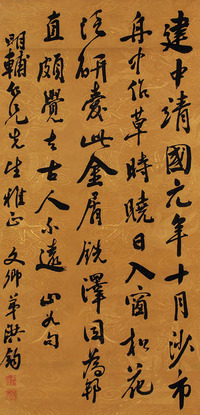 建中靖國元年十月沙市
舟中作草時曉日入窗松花
泛研愛此金屑銑澤因為邦
直頗覺去古人不遠 山谷句
明輔仁兄先生雅正 文卿弟洪鈞